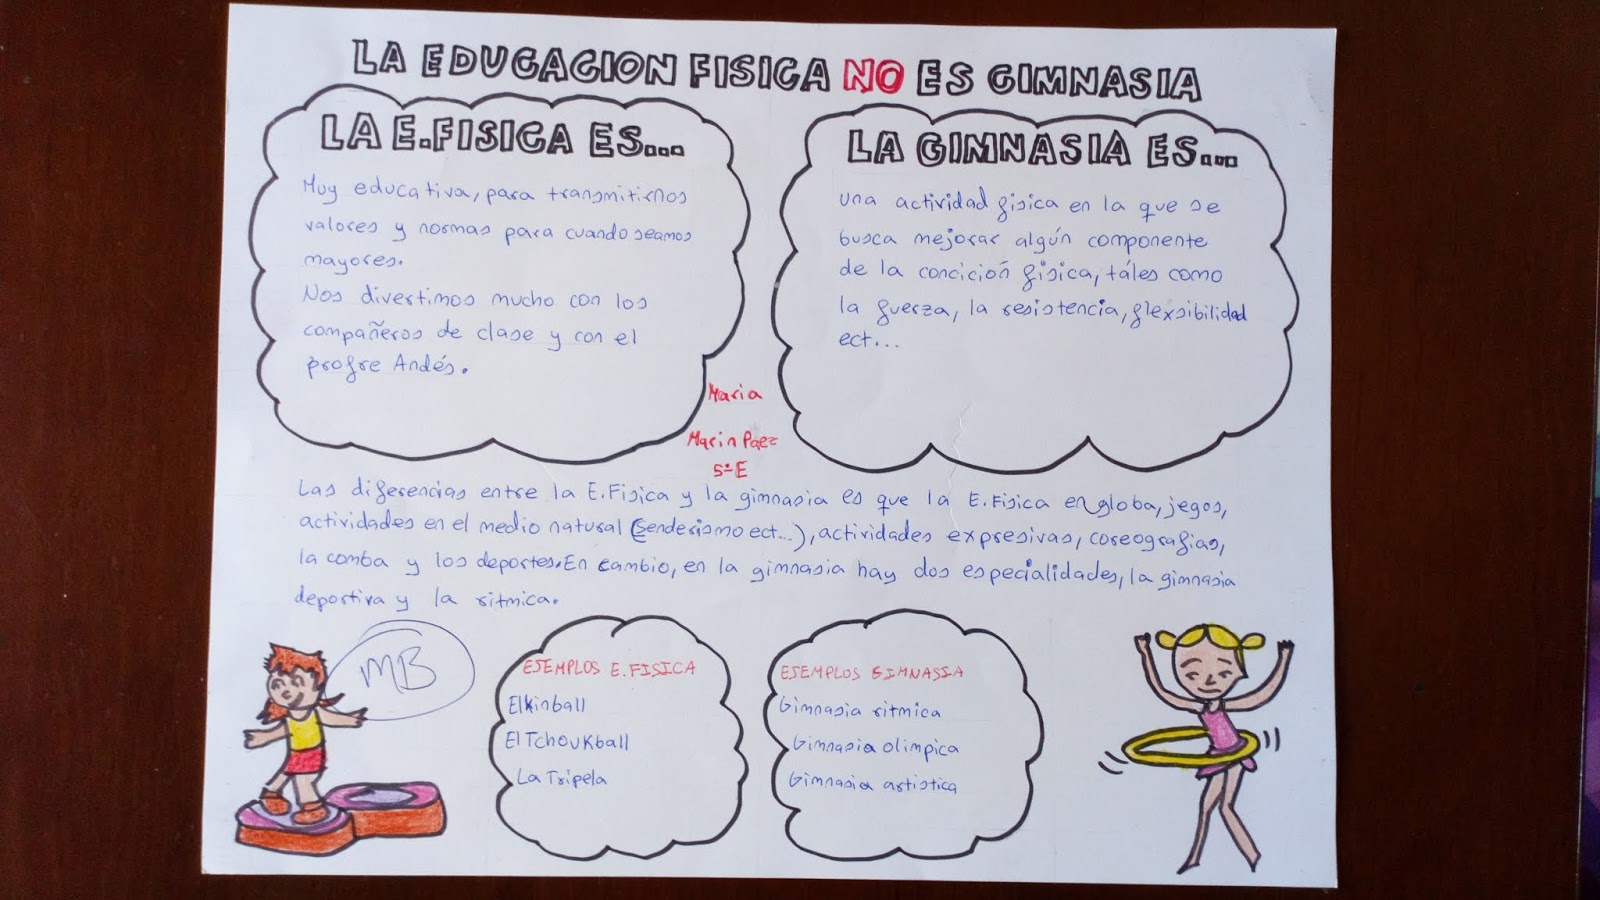 LA EDUCACION FISICA NO ES GIMNASIA
LA E.FISICA ES...
Muy educativa, para transmitirnos
valores y normas para cuando seamos
mayores.
Nos divertimos mucho con los
compañeros de clase y con el
profre Andés.
LA GIMNASIA ES...
una actividad fisica en la que se
busca mejorar algún componente
de la concición fisica, táles como
la fuerza, la resistencia, flexsibilidad
ect...
Maria
Marin Paez
5º E
Las diferencias entre la E.Fisica y la gimnasia es que la E.Fisica engloba, jegos,
actividades en el medio natural (senderismo ect...), actividades expresivas, coreografias,
la comba y los deportes. En cambio, en la gimnasia hay dos especialidades, la gimnasia
deportiva y la ritmica.
MB
EJEMPLOS E.FISICA
El kinball
El Tchoukball
La Tripela
EJEMPLOS GIMNASIA
Gimnasia ritmica
Gimnasia olimpica
Gimnasia artistica